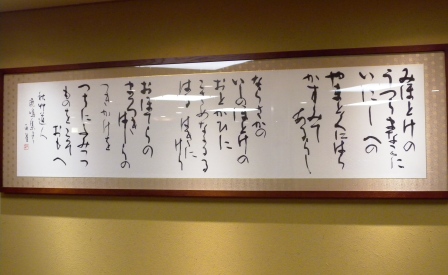 みほとけの
うつらまなこに
いにしへの
やまとくにはら
かすみてあるらし
ならさかの
いしのほとけの
おとかひに
こさめなかるる
はるはきにけり
おほてらの
まろきはしらの
つきかけを
つちにふみつつ
ものをこそおもへ
秋艸道人